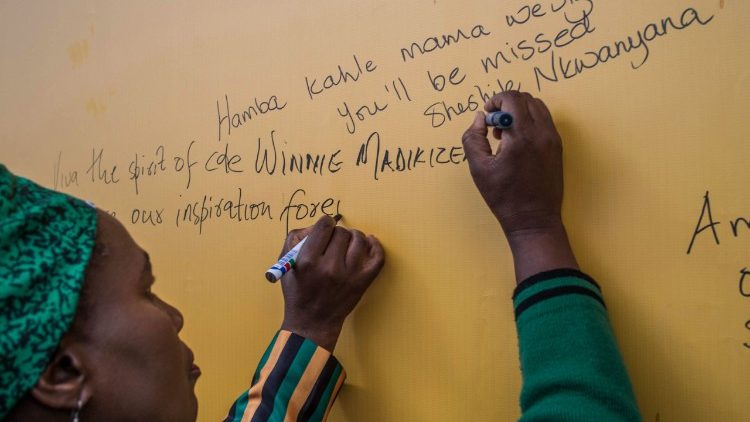 Hamba kahle mama wethu
you'll be missed
Sheshile Nkwanyana
Viva the spirit of cde WINNIE MADIKIZE
our inspiration fore
Am